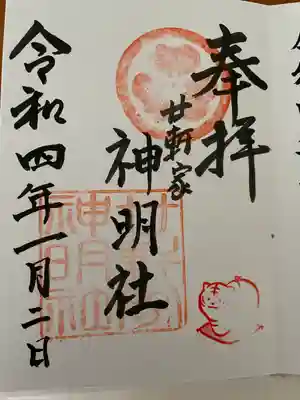 奉拝
廿軒家
神明社
令和四年一月二日